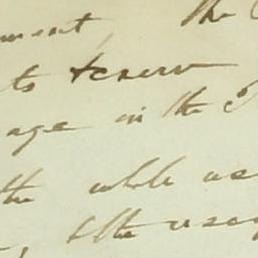 ment, the
to
age in the
the whole as
, & the usag